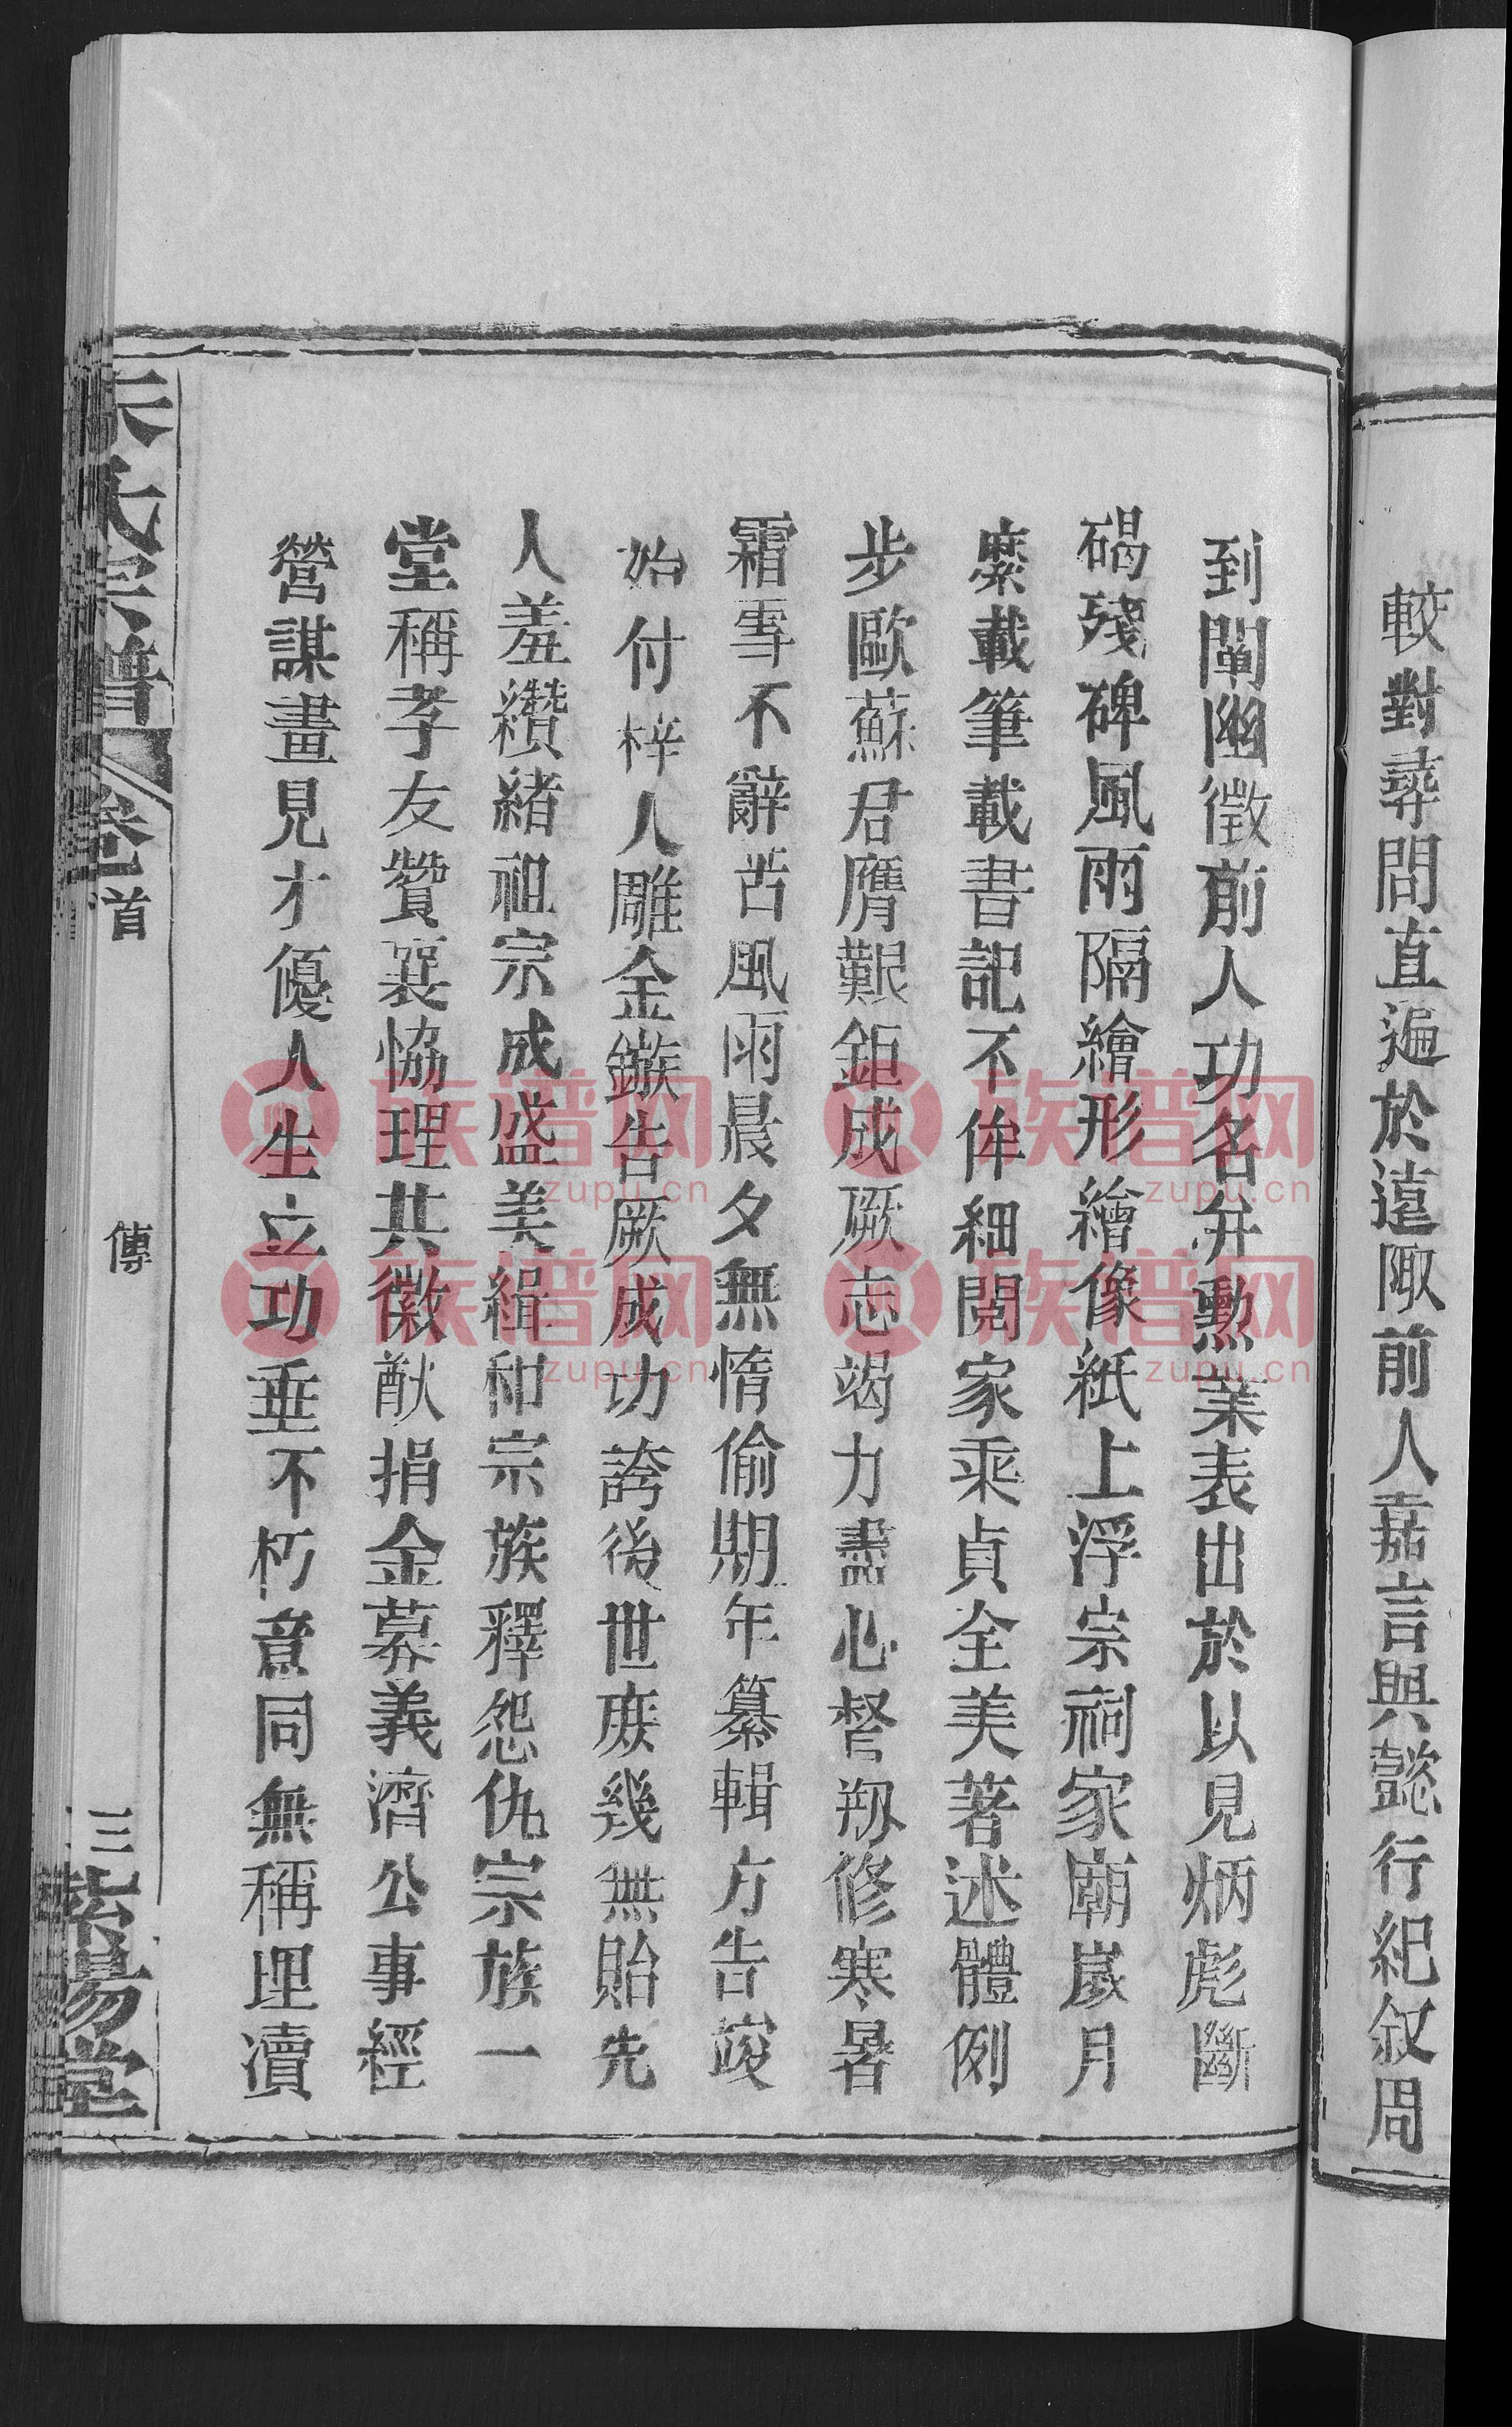 較對尋問直遍於遠陬前人嘉言與懿行紀叙周
到闡幽徵前人功名弁勲業表出於以見炳彪斷
碣殘碑風雨隔繪形繪像紙上浮宗祠家廟嵗月
縻載筆載書記不侔細閱家乘貞全美著述體例
步歐蘇君膺艱鉅成厥志竭力盡心督刅修寒暑
霜雪不辭苦風雨晨夕無惰偷期年纂輯方告竣
始付梓人雕金鏃告厥成功誇後世庻幾無貽先
人羞纘緒祖宗成盛美緝和宗族釋怨仇宗族一
堂稱孝友贊襄恊理共徽猷捐金募義濟公事經
營謀畫見才優人生立功垂不朽意同無稱埋瀆
朱氏宗譜
卷首
傳
三
紫陽堂
族谱网
zupu.cn
族谱网
zupu.cn
族谱网
zupu.cn
族谱网
zupu.cn